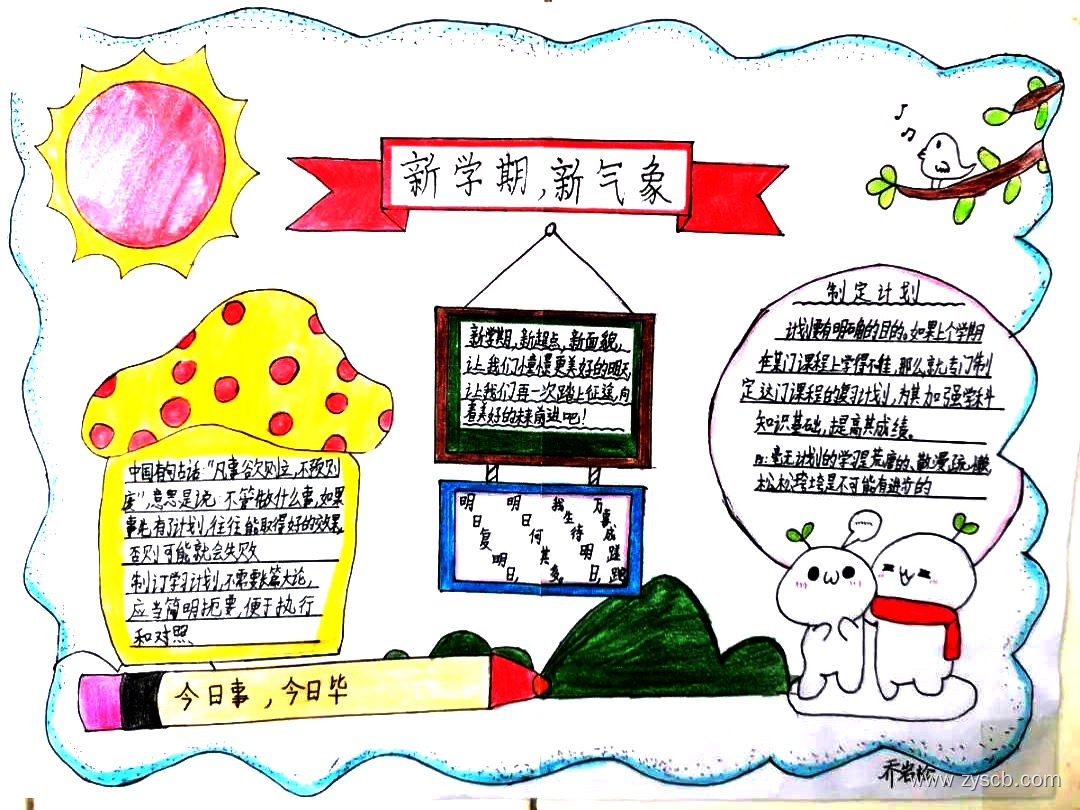 新学期,新气象
新学期,新起点,新面貌,
让我们憧憬更美好的明天
让我们再一次踏上征途,向
着美好的未来前进吧!
明日复明日,
明日何其多。
我生待明日,
万事成蹉跎
中国有句古话:"凡事预则立,不预则
废",意思是说:不管做什么事,如果
事先有了计划,往往能取得好的效果,
否则可能就会失败
制订学习计划,不需要长篇大论,
应当简明扼要,便于执行
和对照、
制定计划
计划要有明确的目的。如果上个学期
在某门课程上学得不佳,那么就专门制
定这门课程的复习计划,为其加强学科
知识基础,提高其成绩。
毫无计划的学习是荒废的、散漫疏懒
松松垮垮是不可能有进步的
今日事,今日毕
www.zyscb.com